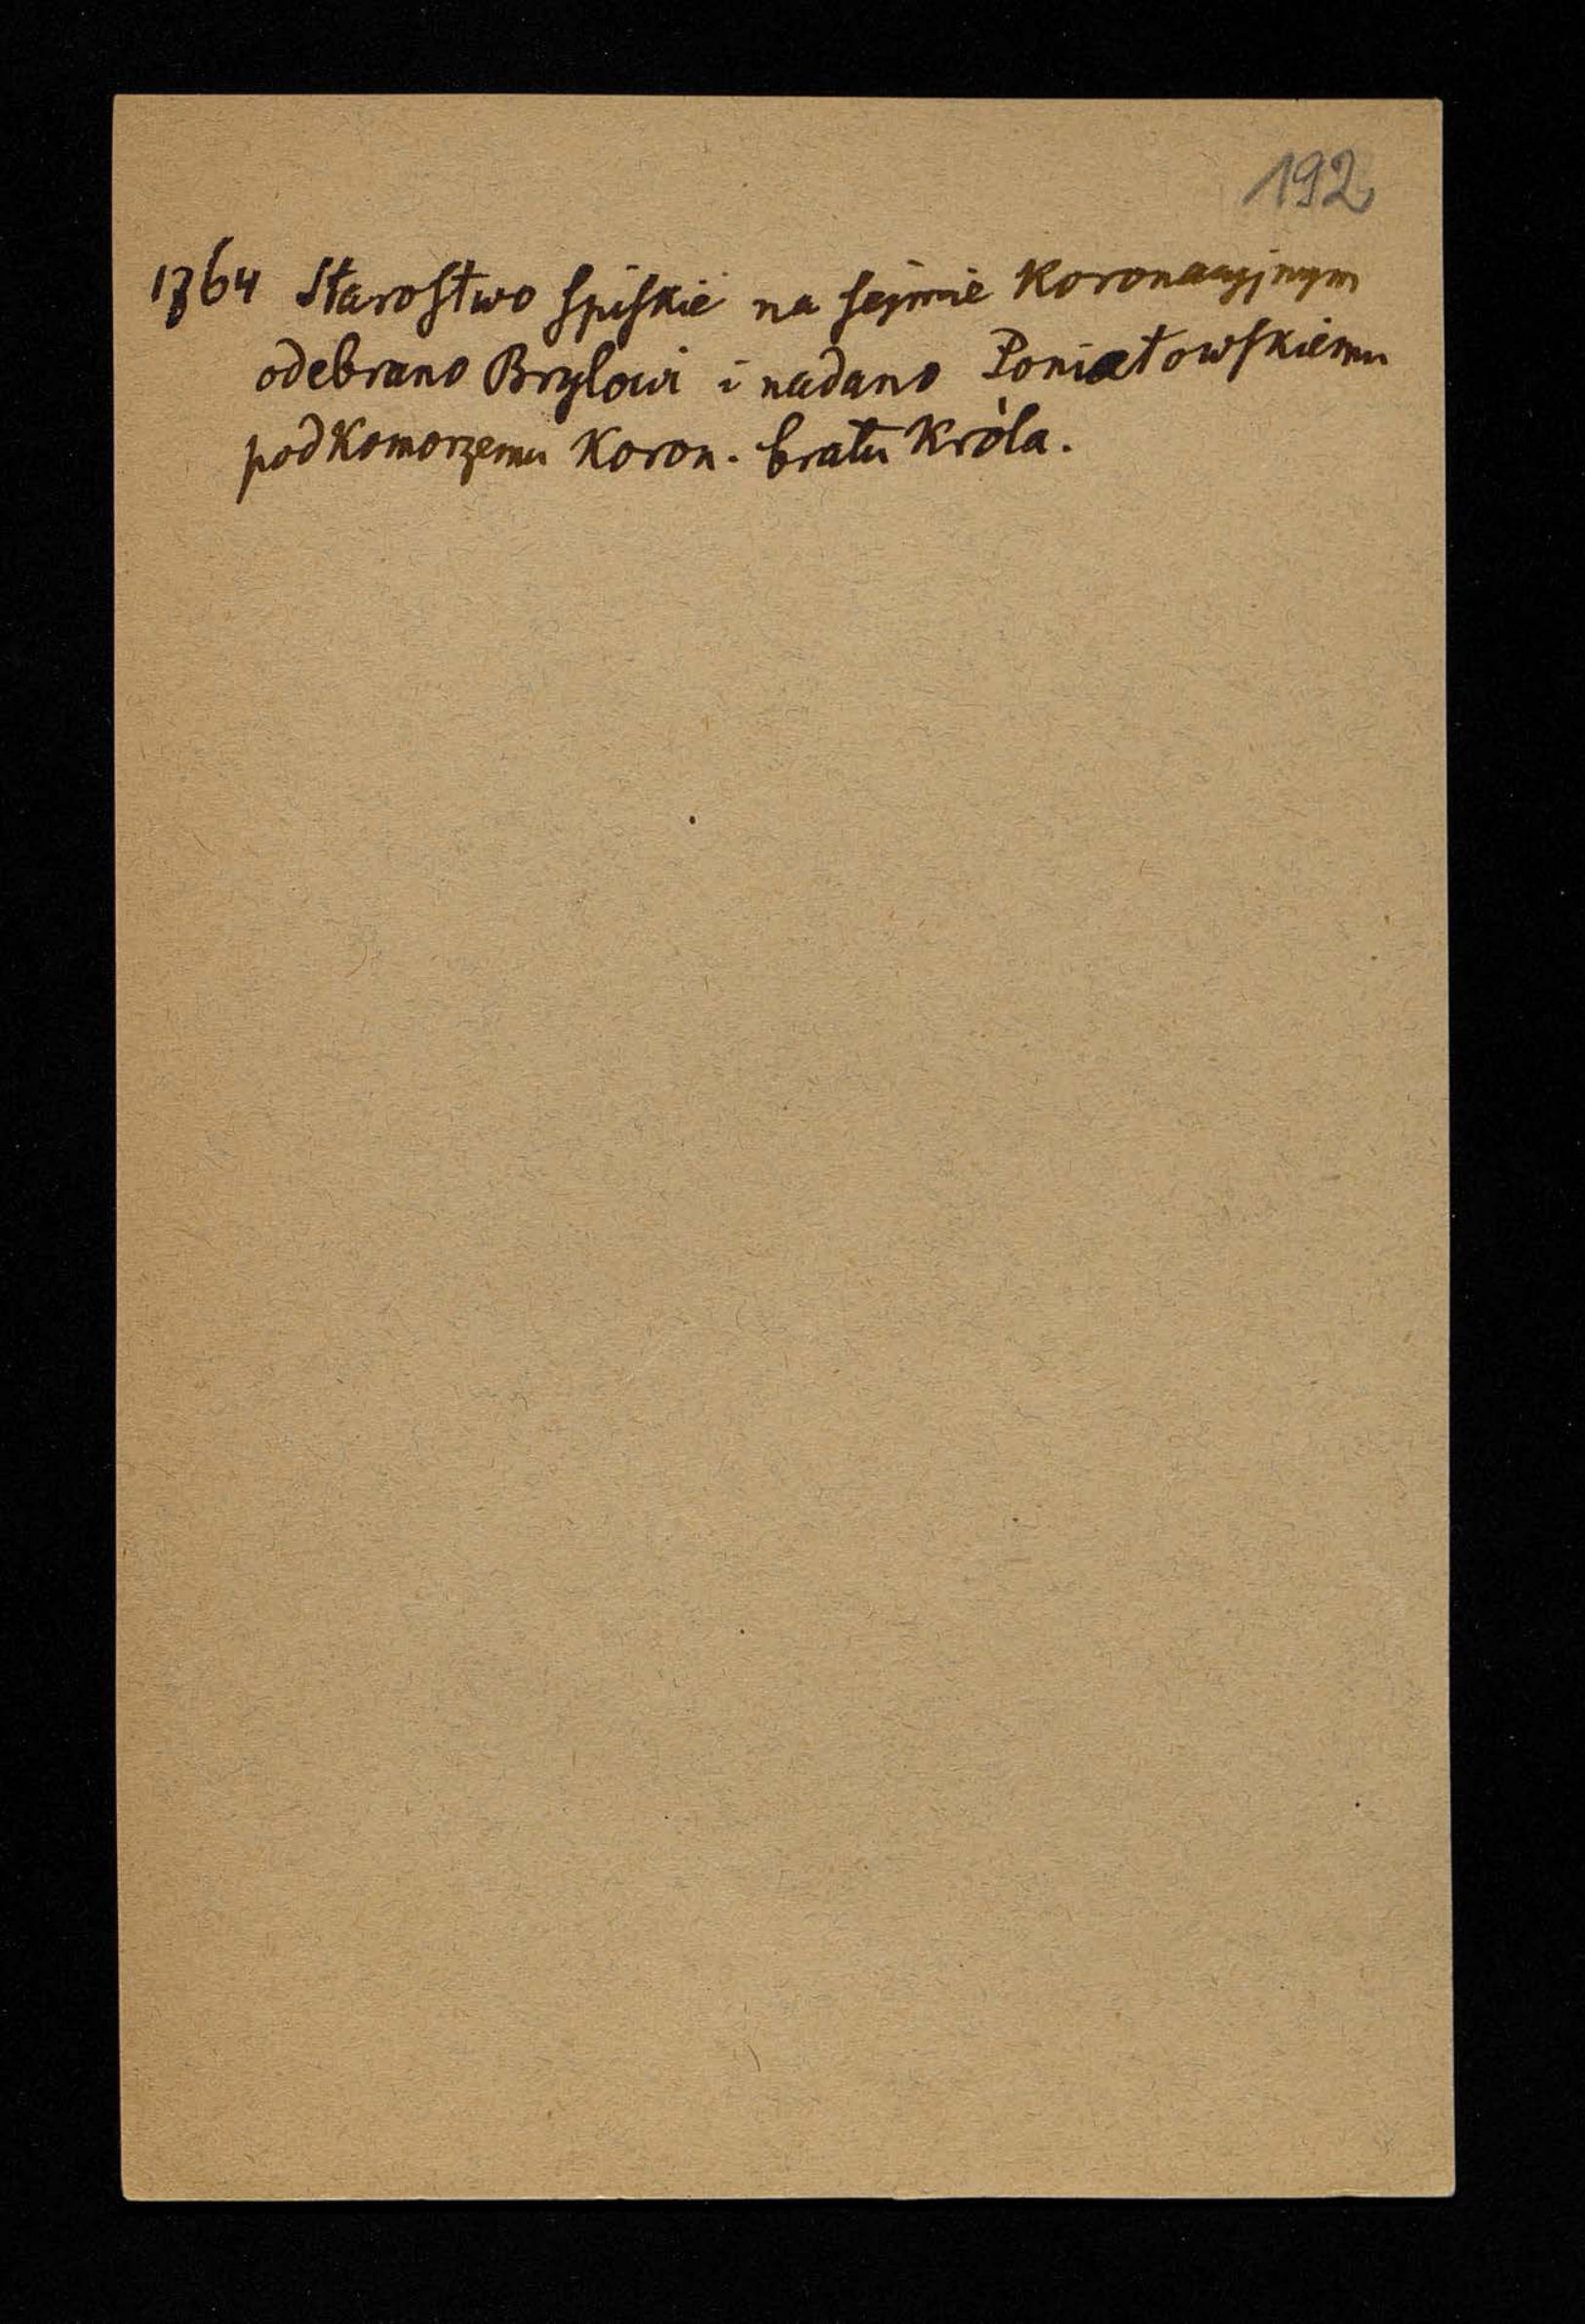 192
1764 Starostwo spiskie na sejmie Koronacyjnym
odebrano Brylowi i nadano Poniatowskiemu
podkomorzemu Koron. bratu Króla.